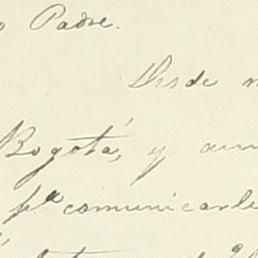 Padre.
Desde
Bogotá, y aun
pª comunicarle